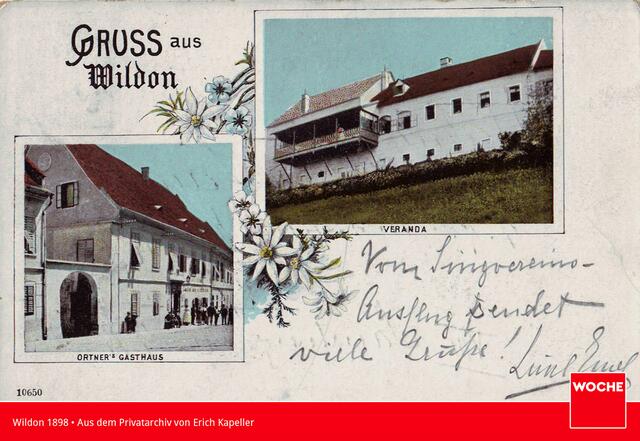 GRUSS aus
Wildon
VERANDA
ORTNER'S GASTHAUS
Vom Singvereins-
Ausflug sendet
viele Grüße!
10650
WOCHE
Wildon 1898 • Aus dem Privatarchiv von Erich Kapeller